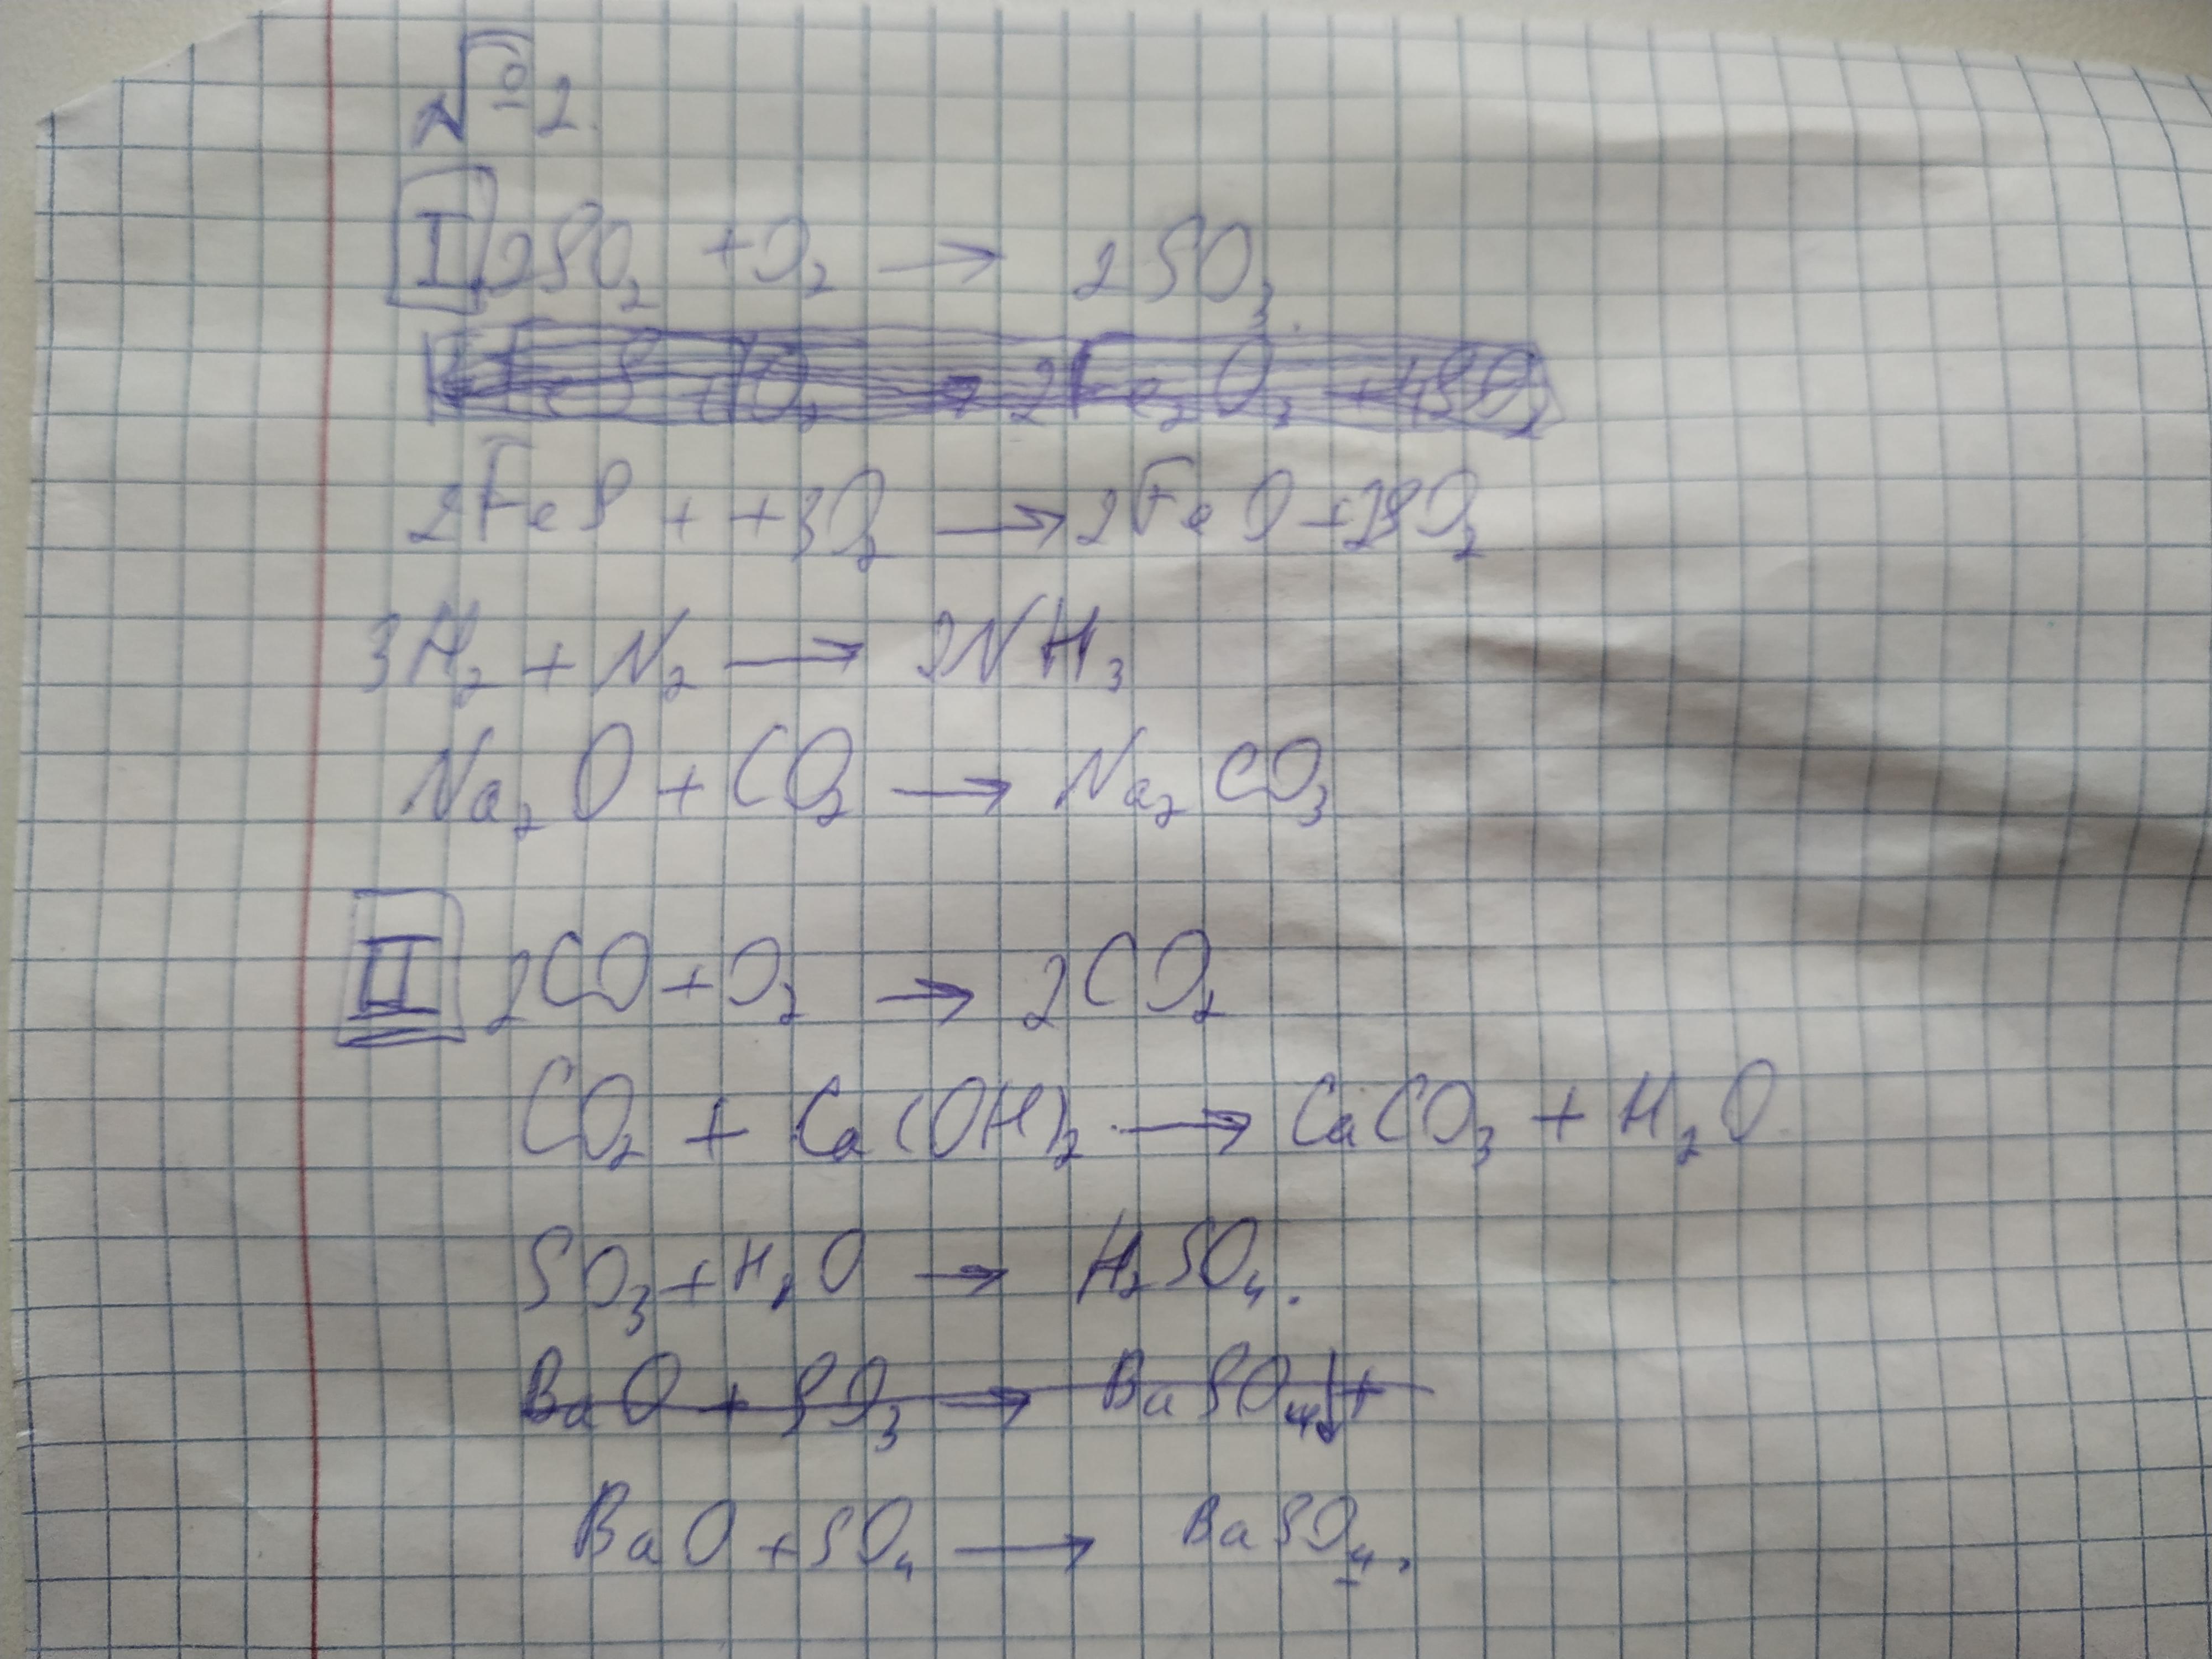 № 2.
I 2SO₂ + O₂ → 2SO₃.
FeS + O₂ → 2Fe₂O₃ + 4SO₂
2FeS + + 3O₂ → 2FeO + 2SO₂
3H₂ + N₂ → 2NH₃
Na₂O + CO₂ → Na₂CO₃
II 2CO + O₂ → 2CO₂
CO₂ + Ca(OH)₂ → CaCO₃ + H₂O
SO₃ + H₂O → H₂SO₄.
BaO + SO₃ → BaSO₄↓ +
BaO + SO₄ → BaSO₄.